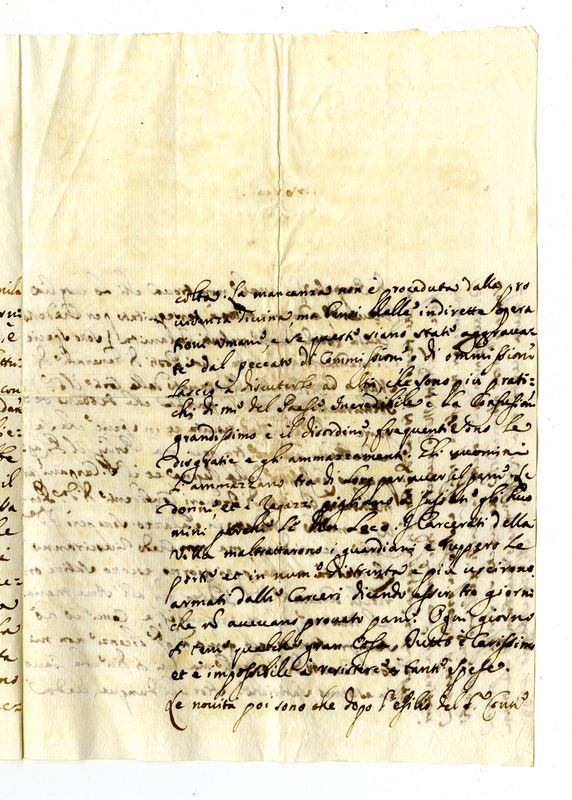 colta. La mancanza non è proceduta dalla pro
videnza Divina, ma bensi dalle indirette opera
tioni umane, e se questi siano stati aggravat
ti dal peccato di Commissioni o di ommissioni
lascio a discuterlo ad altri, che sono più prati=
chi di me del Paese. Incredibile è la Confusion
grandissimo è il disordine, frequenti sono le
disgratie e gli ammazzamenti. Gli uomini
s'ammazzano tra di loro per aver il pane, le
donne, et i ragazzi pigliano a sassate gli huo
mini perche le den loco. I Carcerati della
Villa maltrattarono i guardiani e ruppero le
porte et in num.o di trenta e più uscirono
armati dalle Carceri dicendo esser tre giorni
che non avevano provato pane. Ogni giorno
si teme qualche gran Cosa, Tutto è Carissimo
et è impossibile a resistere a tante spese.
Le novità poi sono che dopo l'esilio del S.r Conte